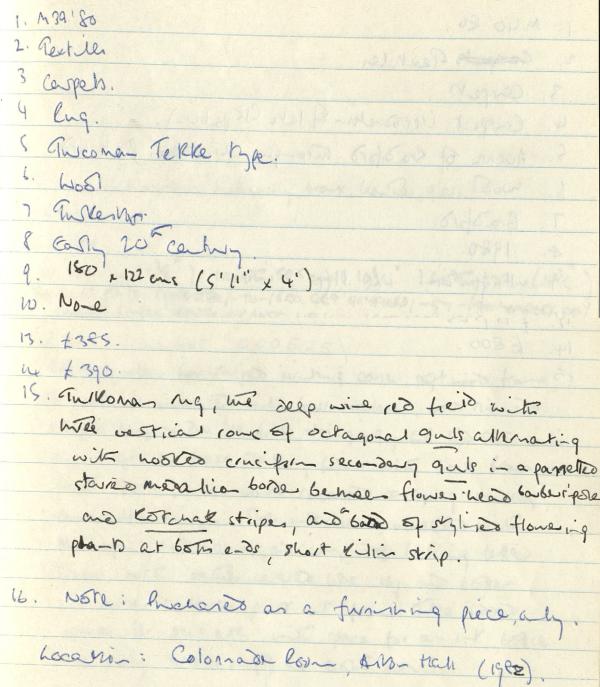 1. M39'80
2. Textiles
3 Carpets.
4 Rug.
5 Turcoman Tekke type.
6. Wool
7 Turkestan.
8 Early 20th century.
9. 180 x 122 cms (5'11" x 4')
10. None
13. £385.
14 £390.
15. Turkoman rug, the deep wine red field with
three vertical rows of octagonal guls alternating
with hooked cruciform secondary guls in a panelled
starred medallion border between flowerhead barberpole
and kotchak stripes, and a band of stylised flowering
plants at both ends, short kilim strip.
16. Note: Purchased as a furnishing piece, only.
Location: Colonnade Room, Hall (1982).